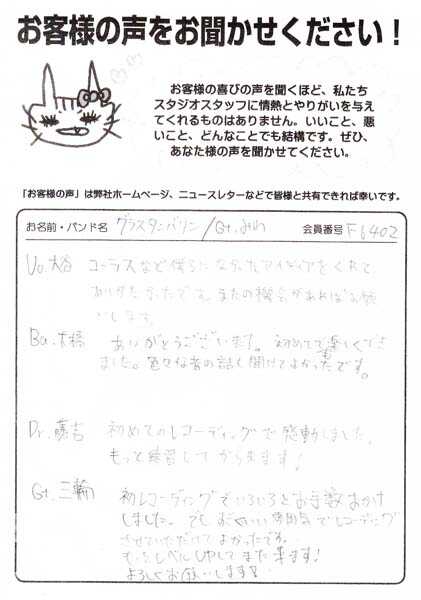 お客様の声をお聞かせください！
お客様の喜びの声を聞くほど、私たち
スタジオスタッフに情熱とやりがいを与え
てくれるものはありません。いいこと、悪
いこと、どんなことでも結構です。ぜひ、
あなた様の声を聞かせてください。
「お客様の声」は弊社ホームページ、ニュースレターなどで皆様と共有できれば幸いです。
お名前・バンド名 グラスタンバリン/Gt.みわ 会員番号 F6402
Vo.大谷 コーラスなど僕らになかったアイディアをくれて
ありがたかったです。またの機会があればお願
いします。
Ba. ありがとうございました。初めてで楽しくでき
ました。色々な音の話も聞けてよかったです。
Dr.嘉吉 初めてのレコーディングで感動しました。
もっと練習してからきます！
Gt.三輪 初レコーディングでいろいろとお手数おかけ
しました。でも すごくいい雰囲気でレコーディング
させていただけてよかったです。
もっとレベルUPしてまた来ます！
よろしくお願いします